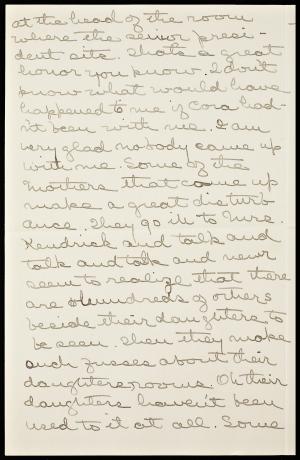 at the head of the room
where the senior presi-
dent sits. That's a great
honor you know. I don't
know what would have
happened to me if Cora had-
n't been with me. I am
very glad nobody came up
with me. Some of the
mothers that come up
make a great disturb
ance. They go in to Mrs.
Kendrick and talk and
talk and talk and never
seem to realize that there
are hundreds of others
beside their daughters to
be seen. Then they make
such fusses about their
daughters rooms. Or their
daughters haven't been
used to it at all. Some